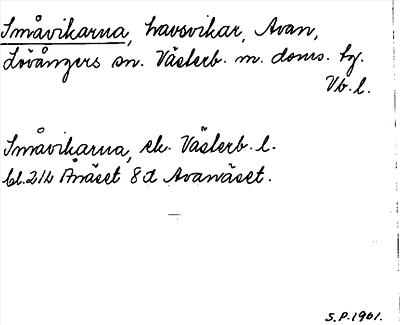 Småvikarna, havsvikar, Avan,
Lövångers sn. Västerb. m. doms. tg.
Vb. l.
Småvikarna, ek. Västerb. l.
bl. 21h Ånäset 8d Avanäset.
S.P. 1961.